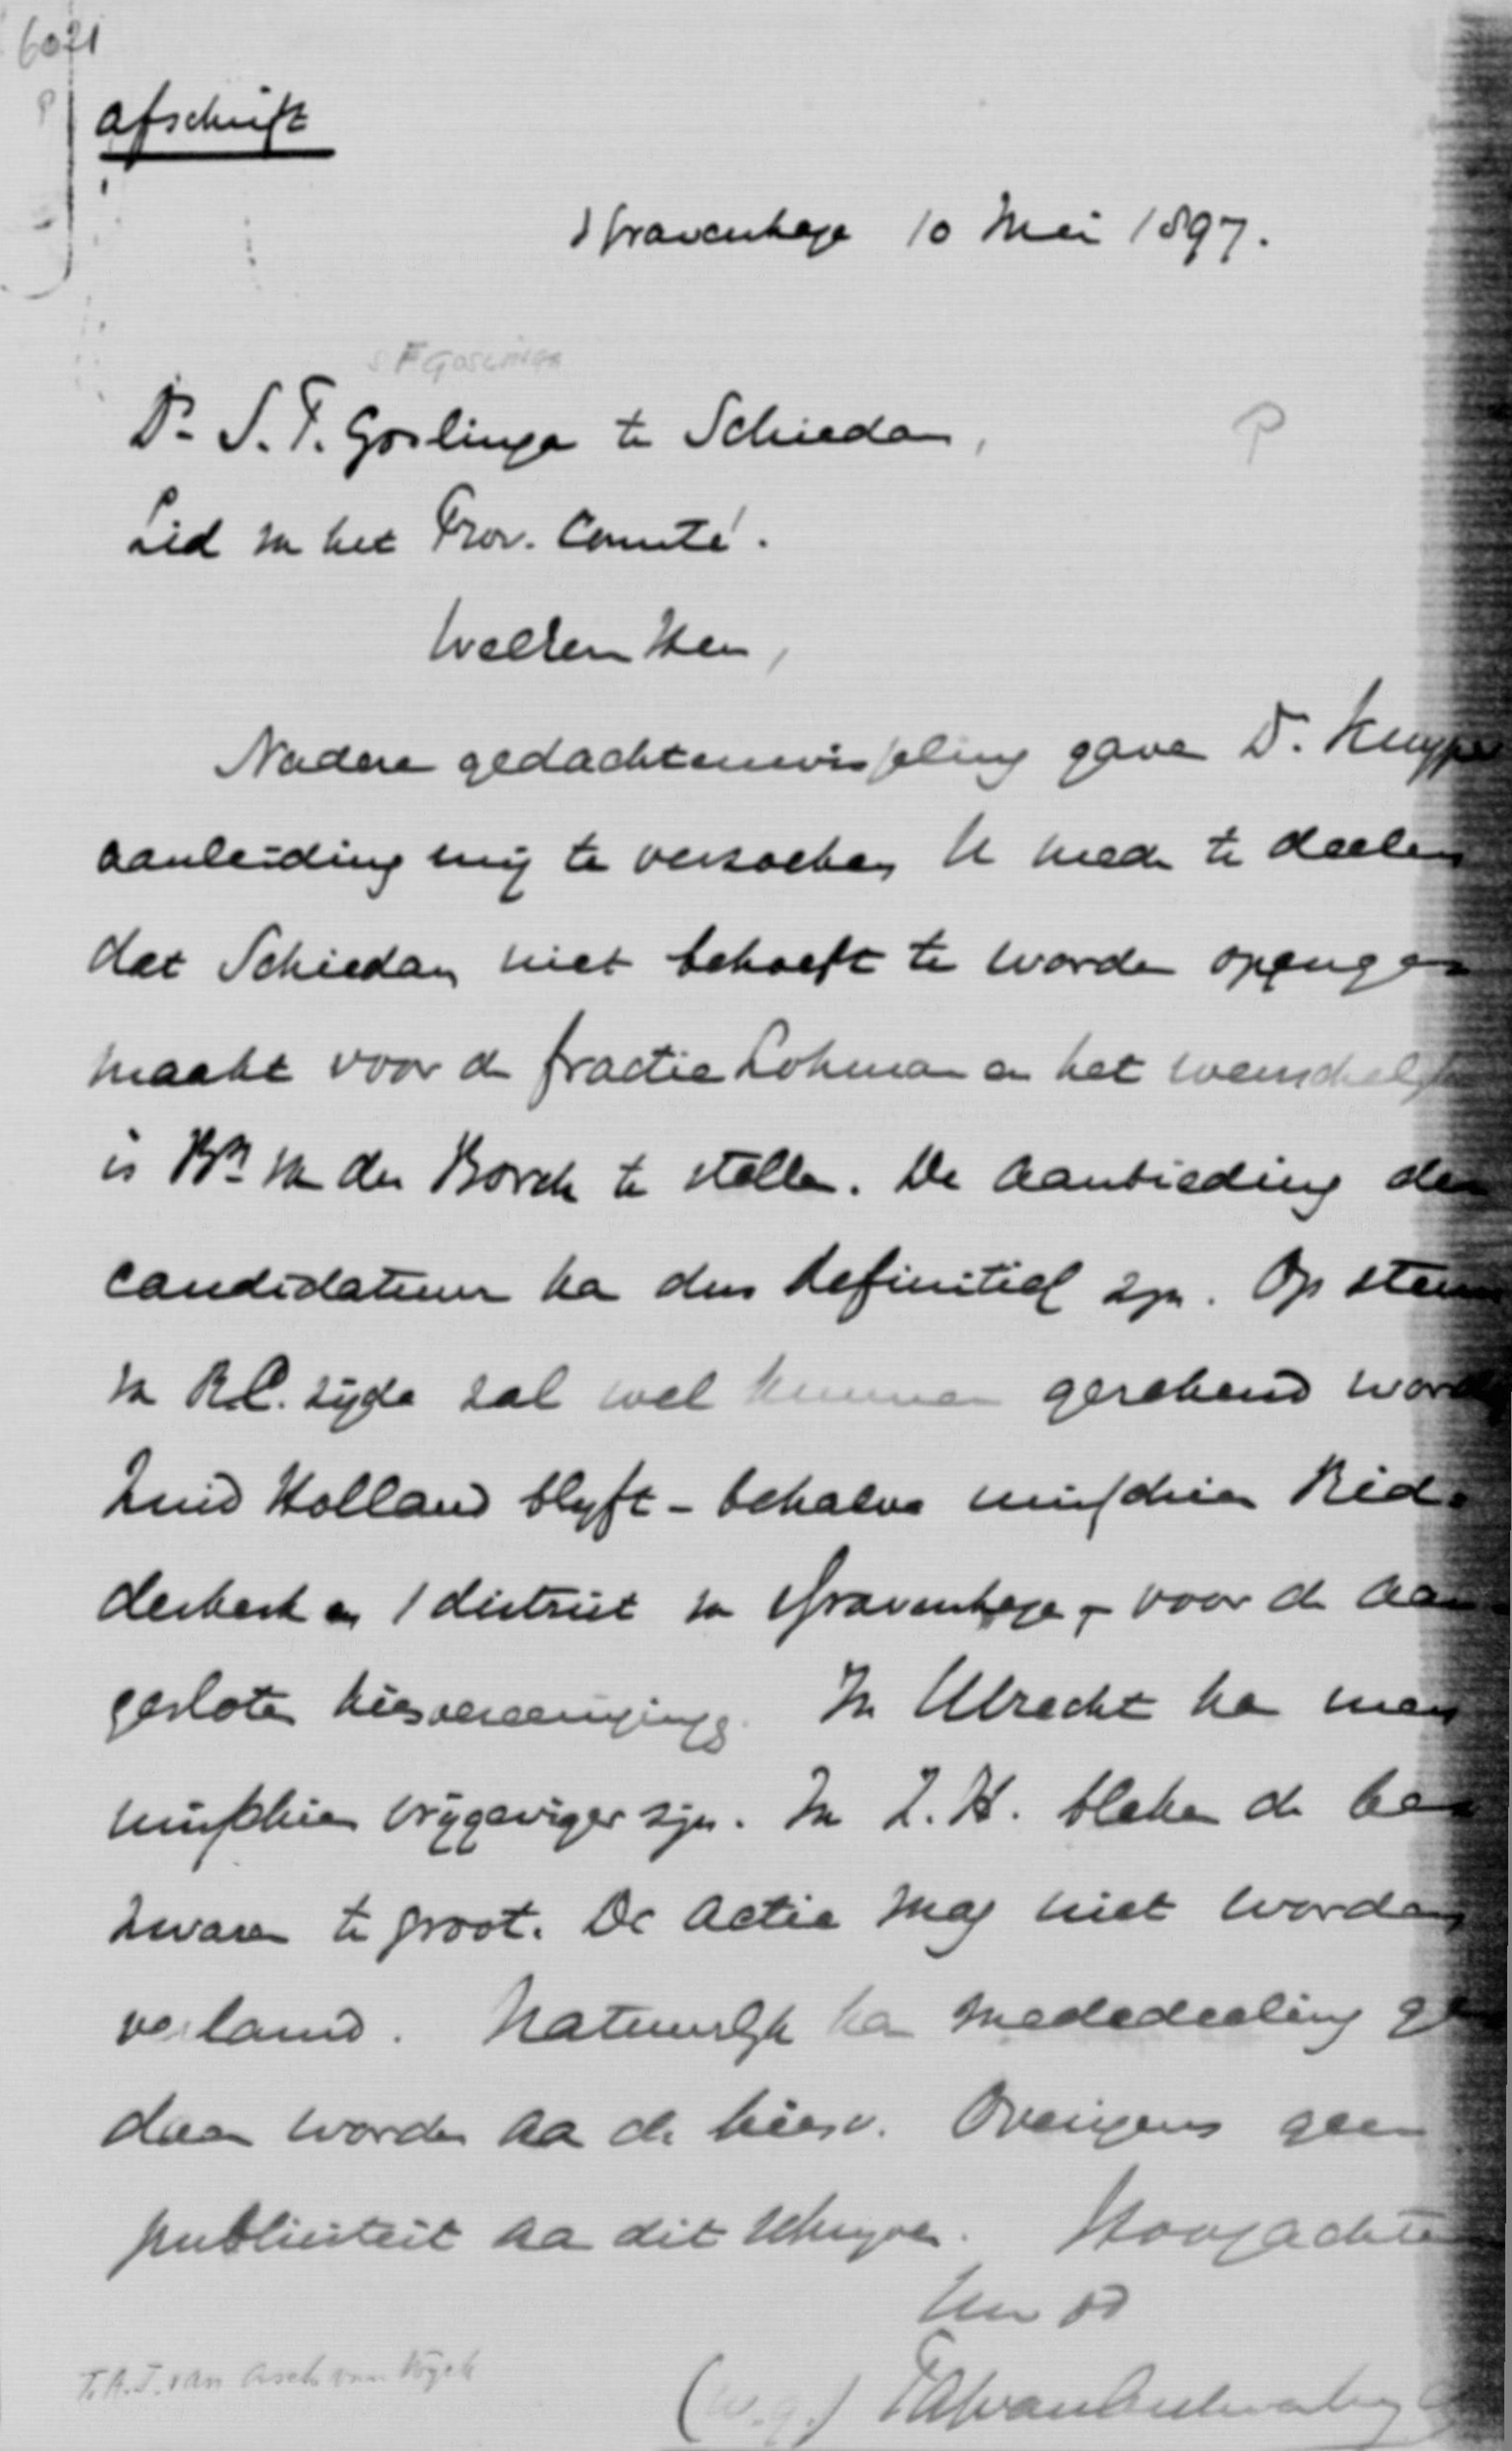 6021
afschrift
sGravenhage 10 Mei 1897.
S F Goslinga
Dr. S. F. Goslinga te Schiedam,
P
Lid van het Prov. Comité.
WelEern Heer,
Nadere gedachtenwisseling gaven Dr. Kuyper
aanleiding mij te verzoeken U mede te deelen
dat Schiedam niet behoeft te worden openge=
maakt voor de fractie Lohman en het wenschelijk
is Bn van der Borch te stellen. De aanbieding der
candidatuur kan dus definitief zijn. Op steun
van R.C. zijde zal wel kunnen gerekend worden
Zuid Holland blijft - behalve misschien Rid=
derkerk en 1 district van sGravenhage, - voor de aan=
gesloten kiesvereenigingen. In Utrecht kan men
misschien vrijgeviger zijn. In Z.H. bleken de be=
zwaren te groot. De actie mag niet worden
verlamd. Natuurlijk kan mededeeling ge=
daan worden aan de kiesv. Overigens geen
publiciteit aan dit schrijven. Hoogachtend
Uw
T.A.J. van Asch van Wijck
(w.g.) TAJvanAschvanWijck